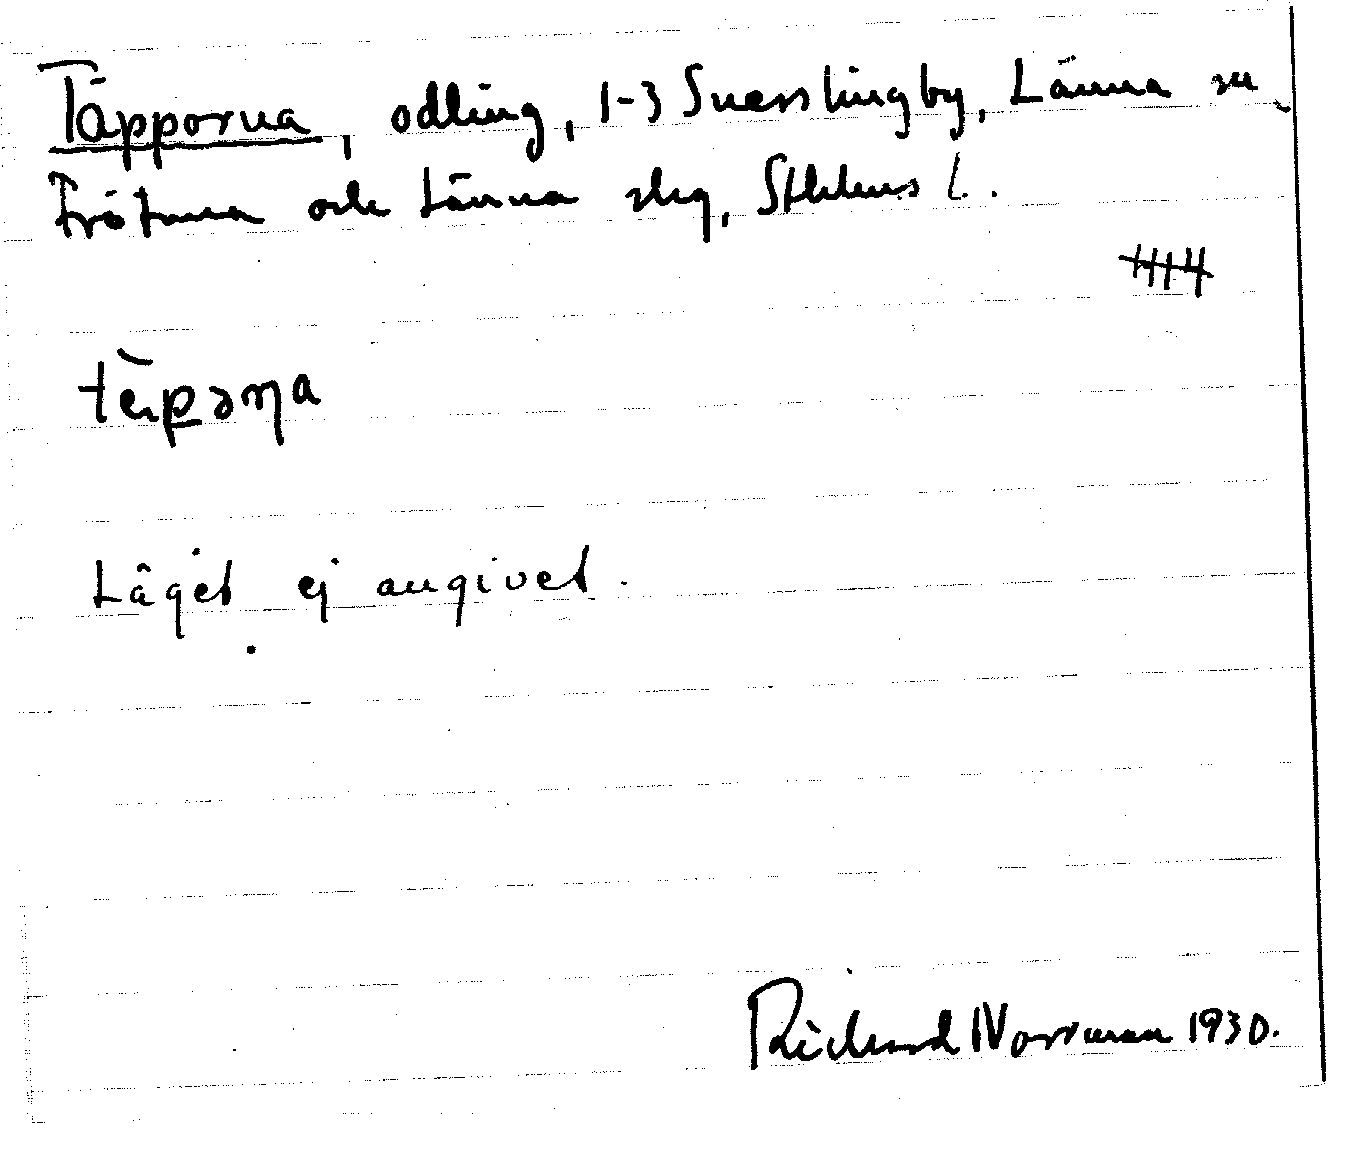 Täpporna, odling, 1-3 Svartlingby, Länna sn,
Frötuna och Länna slg, Sthlms l.
tèpəṇa
Läget ej angivet.
Richard Norrman 1930.